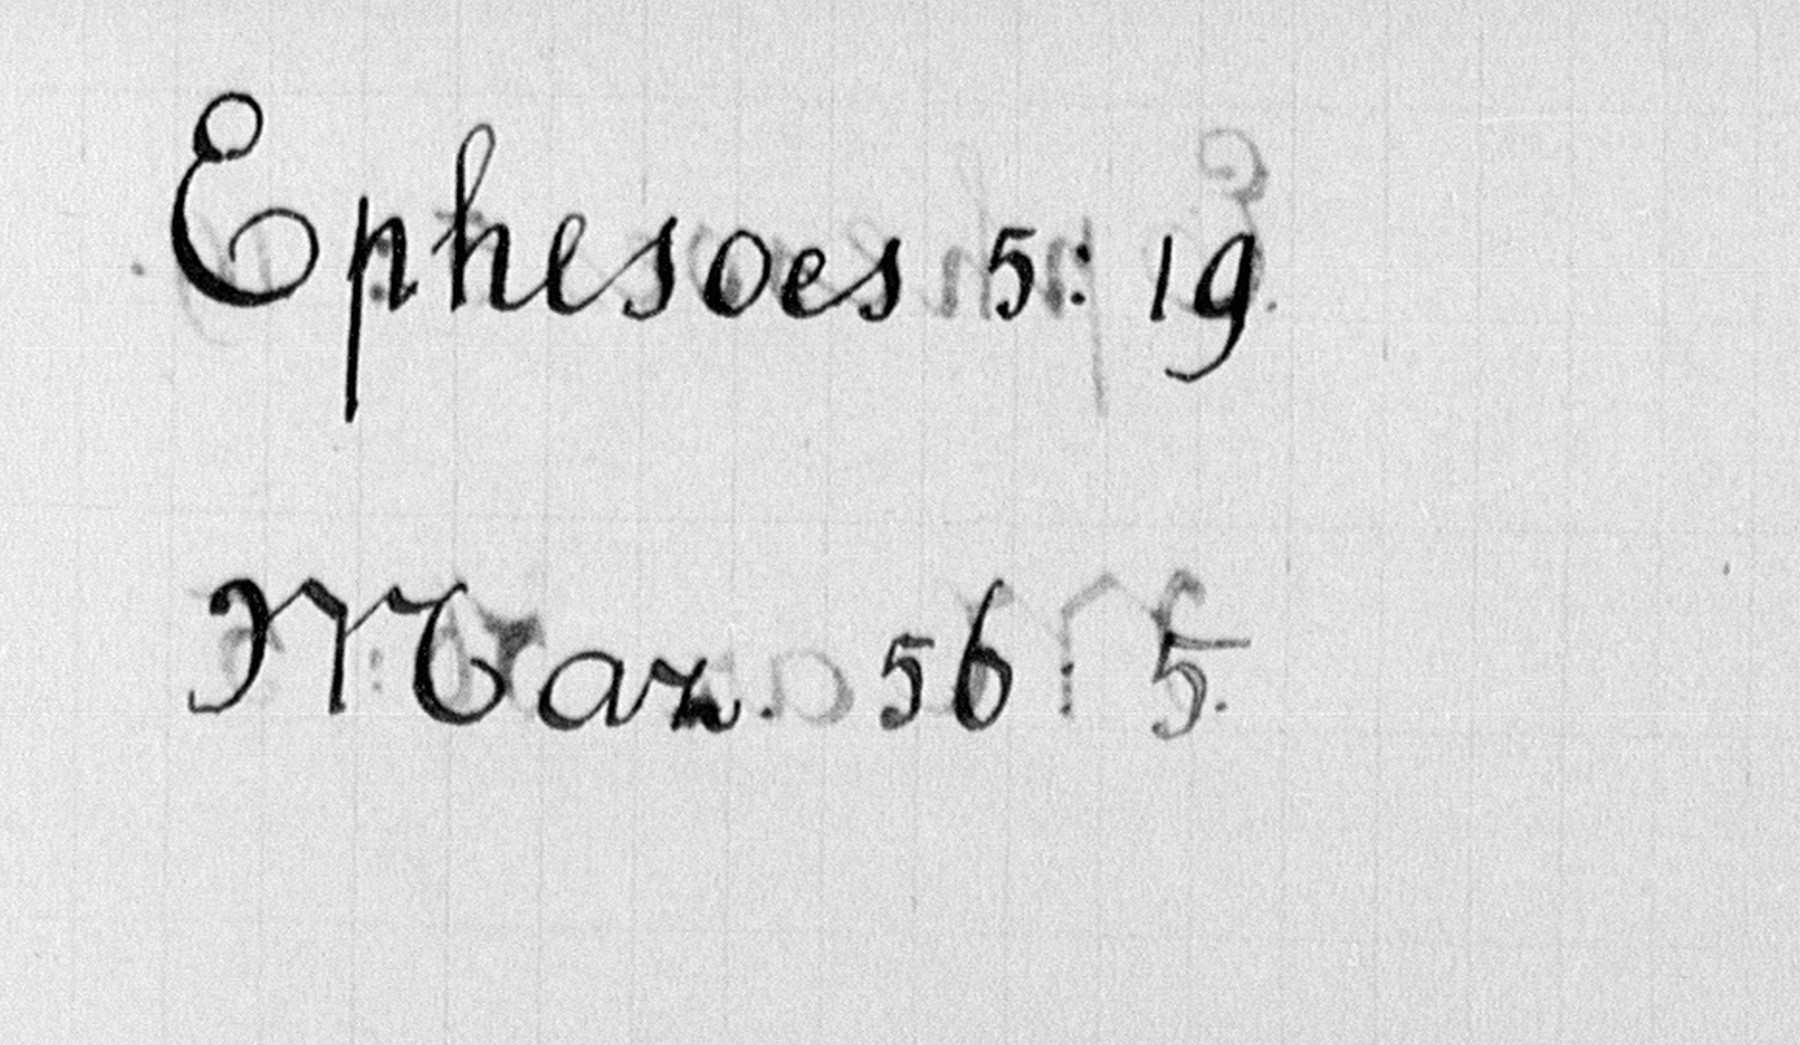 Ephesoes 5: 19.
Mar. 56: 5.